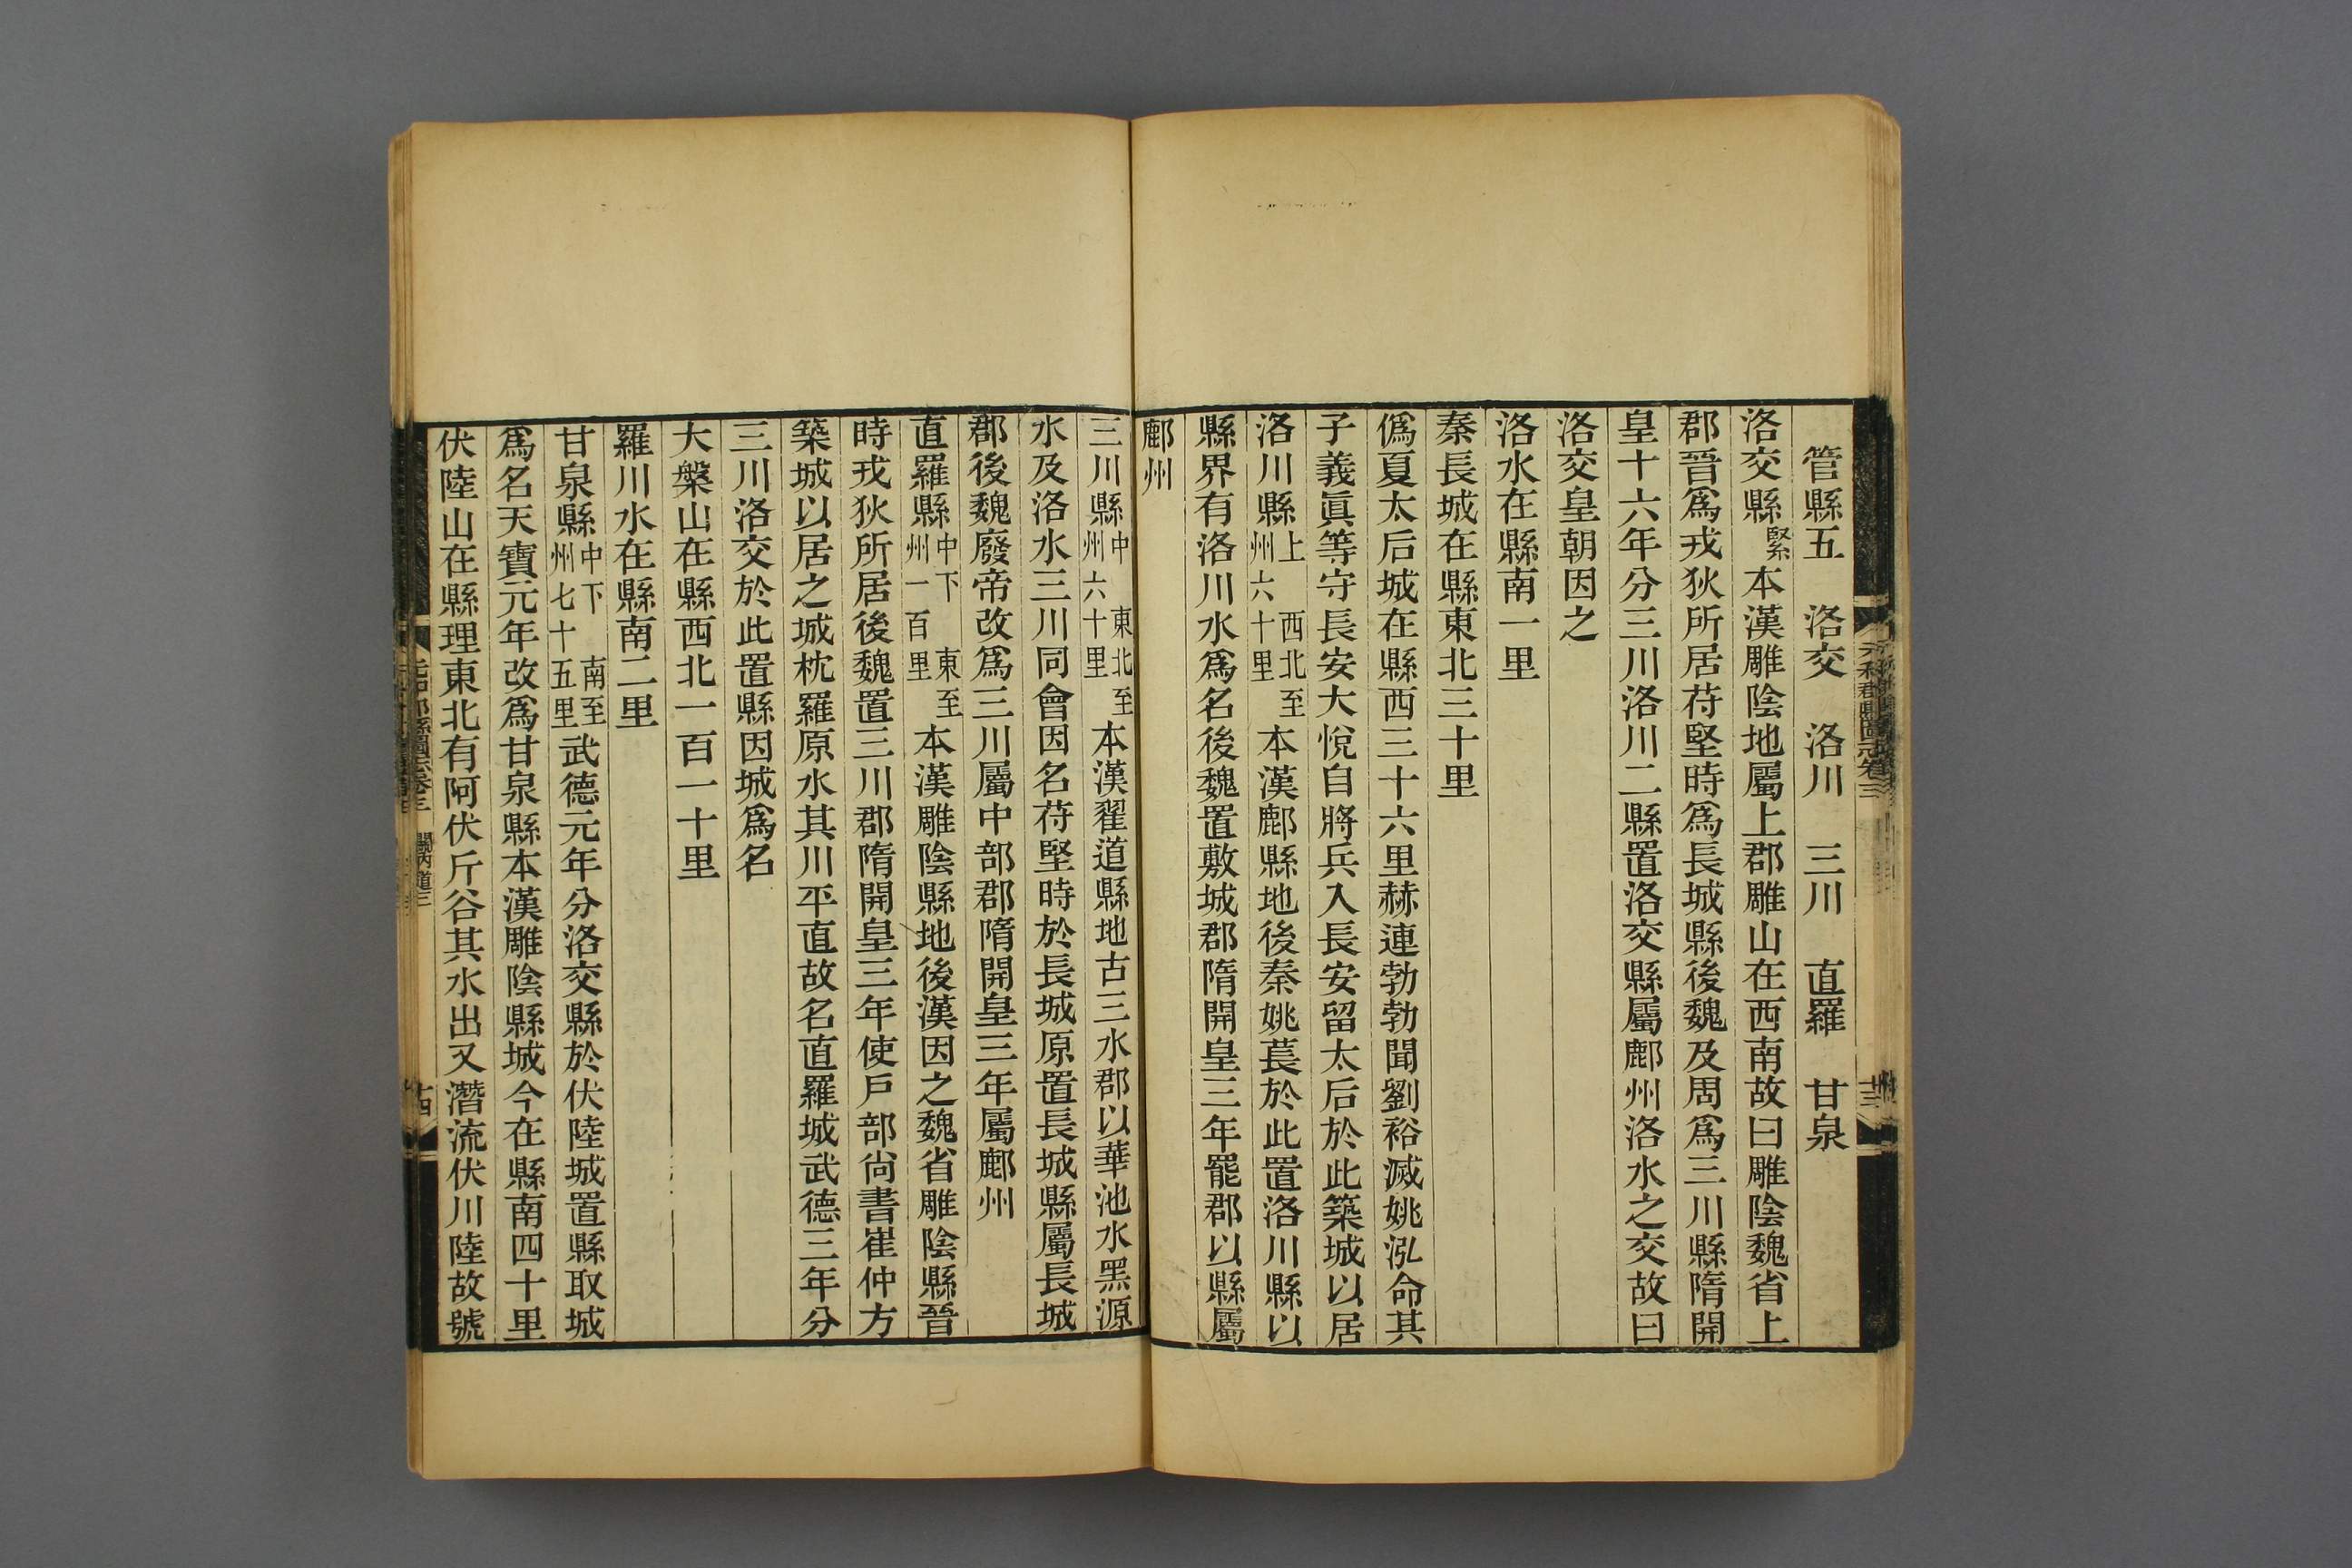 管縣五　洛交　洛川　三川　直羅　甘泉
洛交縣緊本漢雕陰地屬上郡雕山在西南故曰雕陰魏省上
郡晉爲戎狄所居苻堅時爲長城縣後魏及周爲三川縣隋開
皇十六年分三川洛川二縣置洛交縣屬鄜州洛水之交故曰
洛交皇朝因之
洛水在縣南一里
秦長城在縣東北三十里
僞夏太后城在縣西三十六里赫連勃勃聞劉裕滅姚泓命其
子義眞等守長安大悅自將兵入長安留太后於此築城以居
洛川縣上　西北至州六十里本漢鄜縣地後秦姚萇於此置洛川縣以
縣界有洛川水爲名後魏置敷城郡隋開皇三年罷郡以縣屬
鄜州
三川縣中　東北至州六十里本漢翟道縣地古三水郡以華池水黑源
水及洛水三川同會因名苻堅時於長城原置長城縣屬長城
郡後魏廢帝改爲三川屬中部郡隋開皇三年屬鄜州
直羅縣中下　東至州一百里本漢雕陰縣地後漢因之魏省雕陰縣晉
時戎狄所居後魏置三川郡隋開皇三年使戶部尙書崔仲方
築城以居之城枕羅原水其川平直故名直羅城武德三年分
三川洛交於此置縣因城爲名
大槃山在縣西北一百一十里
羅川水在縣南二里
甘泉縣中下　南至州七十五里武德元年分洛交縣於伏陸城置縣取城
爲名天寶元年改爲甘泉縣本漢雕陰縣城今在縣南四十里
伏陸山在縣理東北有阿伏斤谷其水出又潛流伏川陸故號
元和郡縣圖志卷三　關內道三　十四